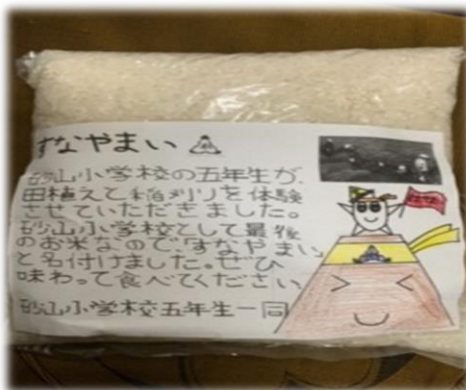 すなやまい
砂山小学校の五年生が、
田植えと稲刈りを体験
させていただきました。
砂山小学校として最後
のお米なので「すなやまい」
と名付けました。ぜひ
味わって食べてください
砂山小学校五年生一同